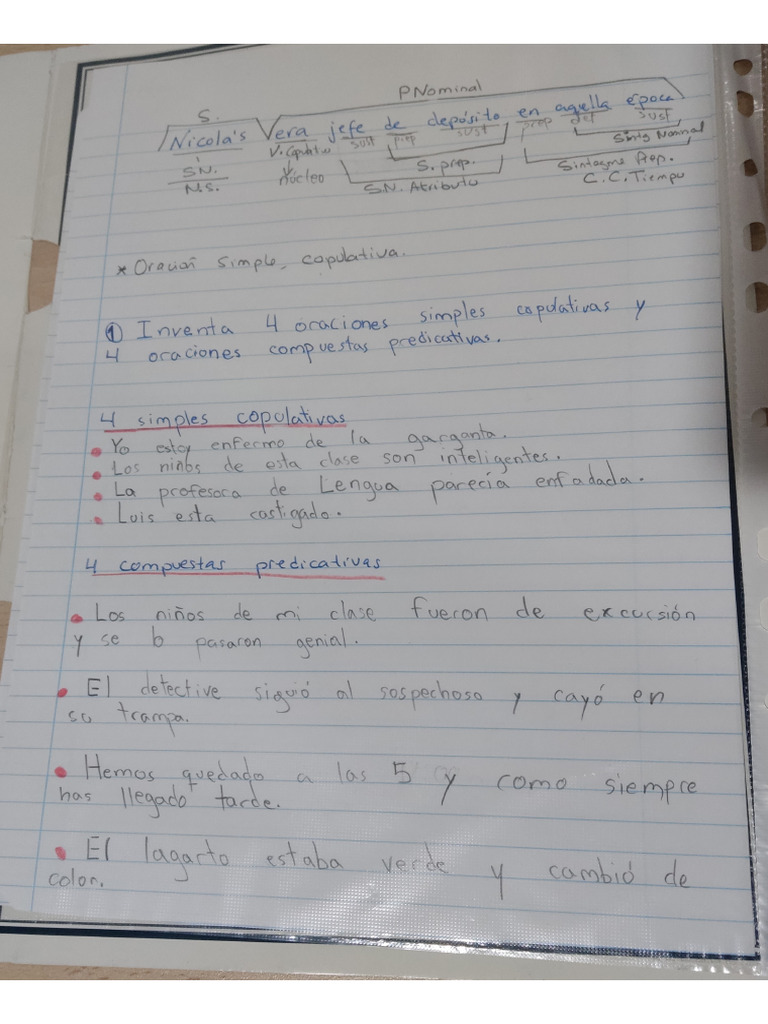 PNominal
S.
Nicola's Vera jefe de depósito en aquella época
V. Copulativo sust prep sust prep det sust
Sintg Nominal
SN. Núcleo S. prep. Sintagma Prep.
N.S. S.N. Atributo C.C. Tiempo
* Oración simple, copulativa.
① Inventa 4 oraciones simples copulativas y
4 oraciones compuestas predicativas.
4 simples copulativas
• Yo estoy enfermo de la garganta.
• Los niños de esta clase son inteligentes.
• La profesora de Lengua parecía enfadada.
• Luis esta castigado.
4 compuestas predicativas
• Los niños de mi clase fueron de excursión
y se lo pasaron genial.
• El detective siguió al sospechoso y cayó en
su trampa.
• Hemos quedado a las 5 y como siempre
has llegado tarde.
• El lagarto estaba verde y cambió de
color.